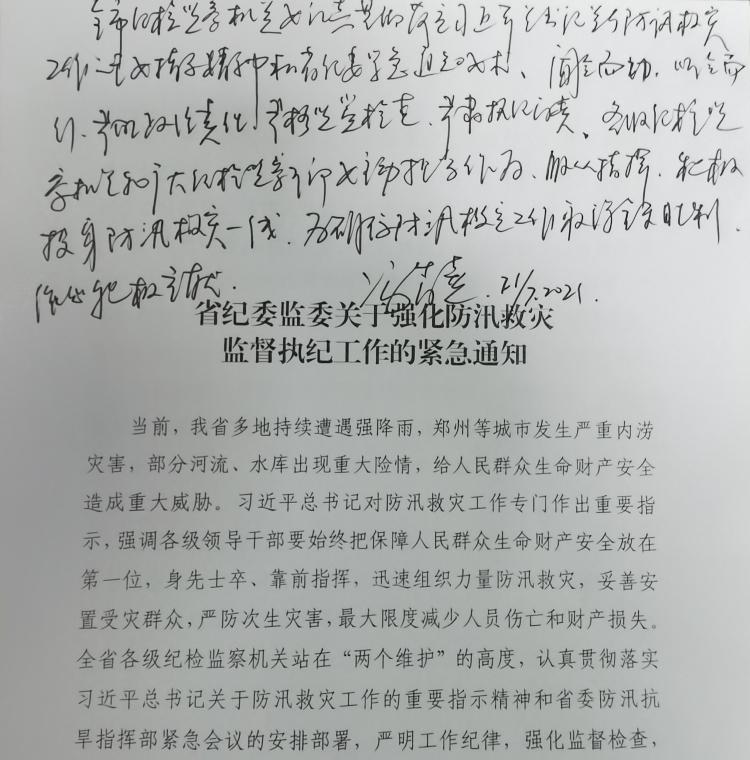 全市纪检监察机关要认真贯彻落实习近平总书记关于防汛救灾
工作重要指示精神和省纪委紧急通知要求、闻令而动、听令而
行、严明政治责任、严格监督检查、严肃执纪问责、各级纪检监
察机关和广大纪检监察干部要主动担当作为、服从指挥、积极
投身防汛救灾一线、为确保防汛救灾工作取得全面胜利
作出积极贡献. 21/7.2021.
省纪委监委关于强化防汛救灾
监督执纪工作的紧急通知
当前，我省多地持续遭遇强降雨，郑州等城市发生严重内涝
灾害，部分河流、水库出现重大险情，给人民群众生命财产安全
造成重大威胁。习近平总书记对防汛救灾工作专门作出重要指
示，强调各级领导干部要始终把保障人民群众生命财产安全放在
第一位，身先士卒、靠前指挥，迅速组织力量防汛救灾，妥善安
置受灾群众，严防次生灾害，最大限度减少人员伤亡和财产损失。
全省各级纪检监察机关站在“两个维护”的高度，认真贯彻落实
习近平总书记关于防汛救灾工作的重要指示精神和省委防汛抗
旱指挥部紧急会议的安排部署，严明工作纪律，强化监督检查，